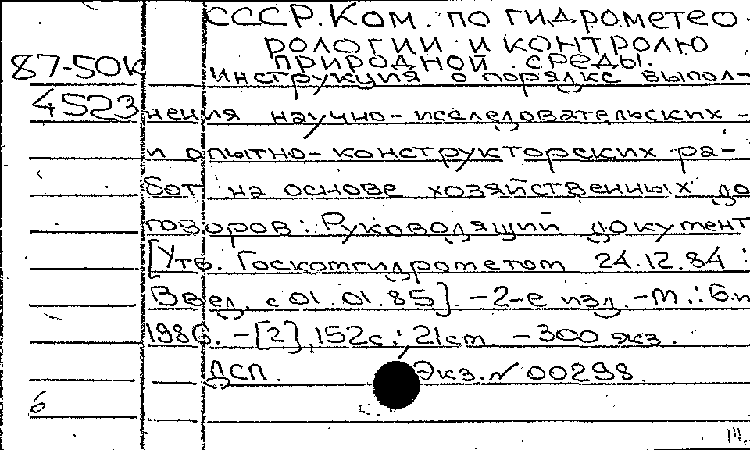 СССР. Ком. по гидрометео
рологии и контролю
природной среды.
87-50к
Инструкция о порядке выпол-
4523
нения научно-исследовательских -
и опытно-конструкторских ра-
бот на основе хозяйственных до
говоров: Руководящий документ
[Утв. Госкомгидрометом 24.12.84 :
Введ. с 01.01.85] - 2-е изд. - М.: Б.и
1986. - [2], 152с.; 21см - 300 экз.
ДСП. Экз. № 00298
6